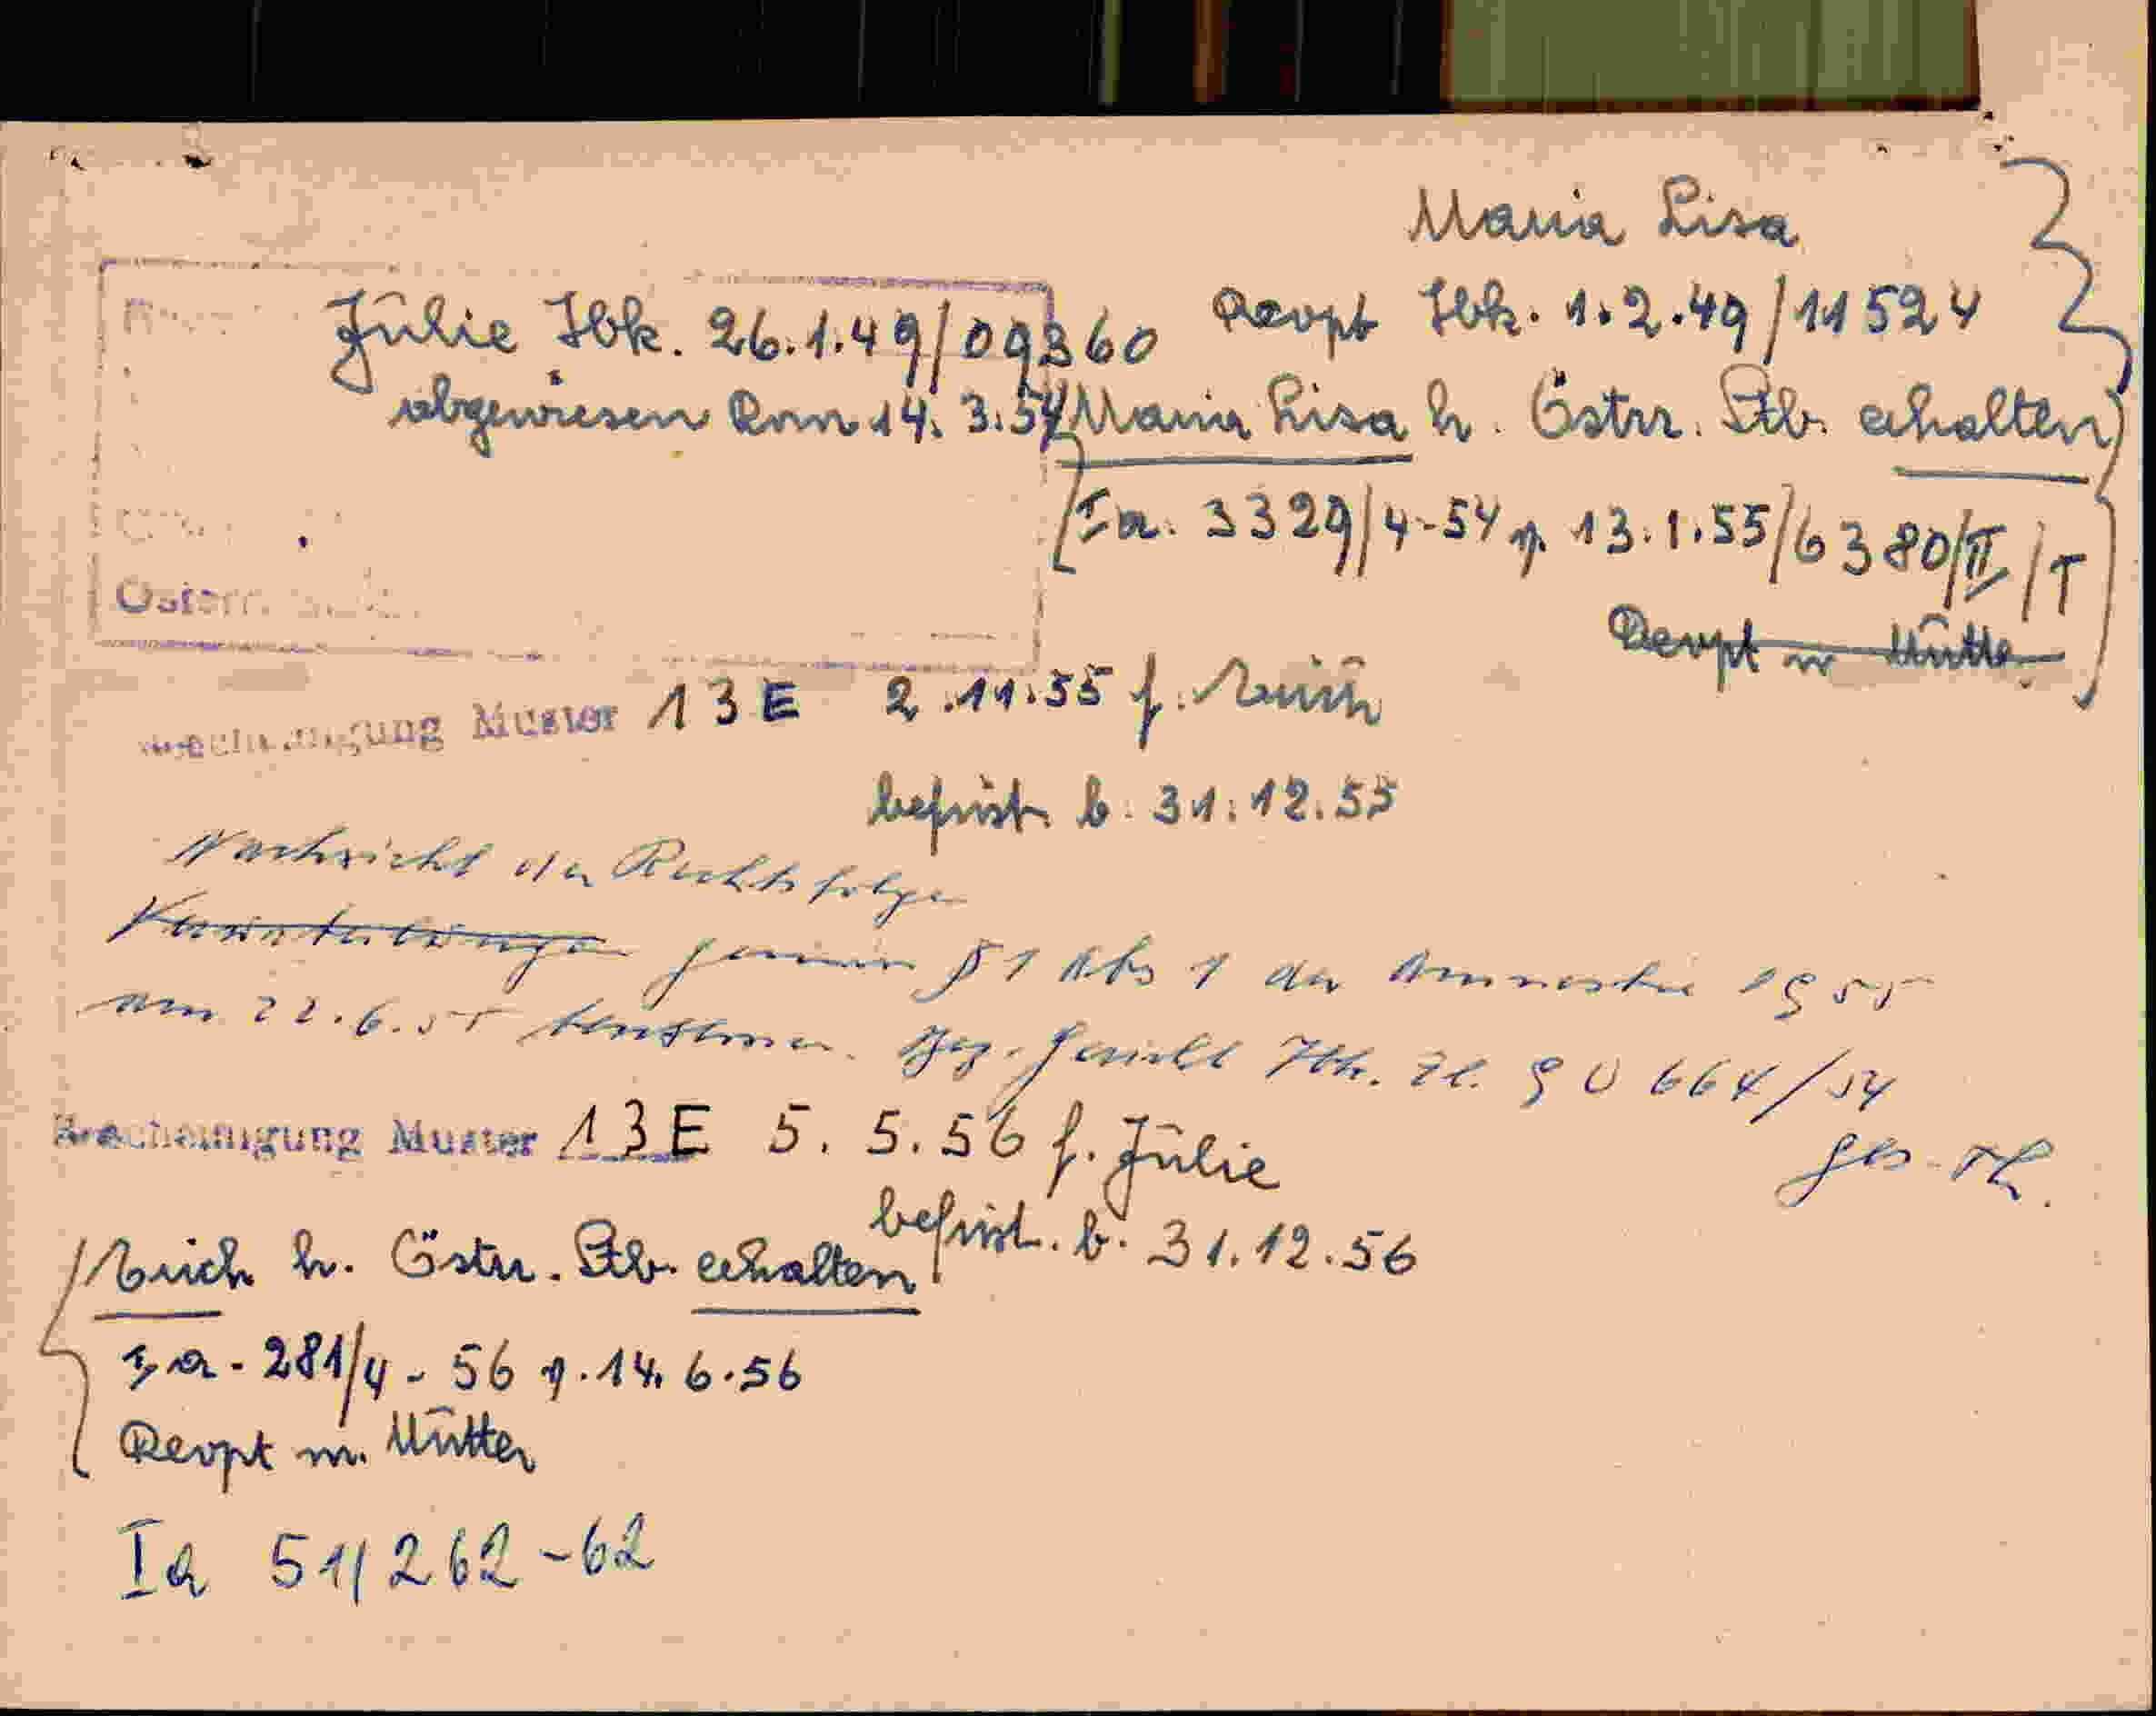 Maria Lisa
Julie Ibk. 26.1.49/09360
Reopt Ibk. 1.2.49/11524
abgewiesen Rom 14.3.54
Maria Lisa h. Östrr. Stb. erhalten
Ia. 3329/4-54 v. 13.1.55/6380/II/T
Reopt m Mutter
Muster 13E 2.11.55 f.
befrist. b. 31.12.55
Nachsicht der Rechtsfolgen
gemäß §1 Abs 1 der Amnestie 1955
am 22.6.55 Bez. Gericht Ibk. Zl. 9 U 664/54
Bescheinigung Muster 13E 5.5.56 f. Julie
befrist. b. 31.12.56
h. Östrr. Stb. erhalten
Ia. 281/4-56 v. 14.6.56
Reopt m. Mutter
Ia 51/262-62